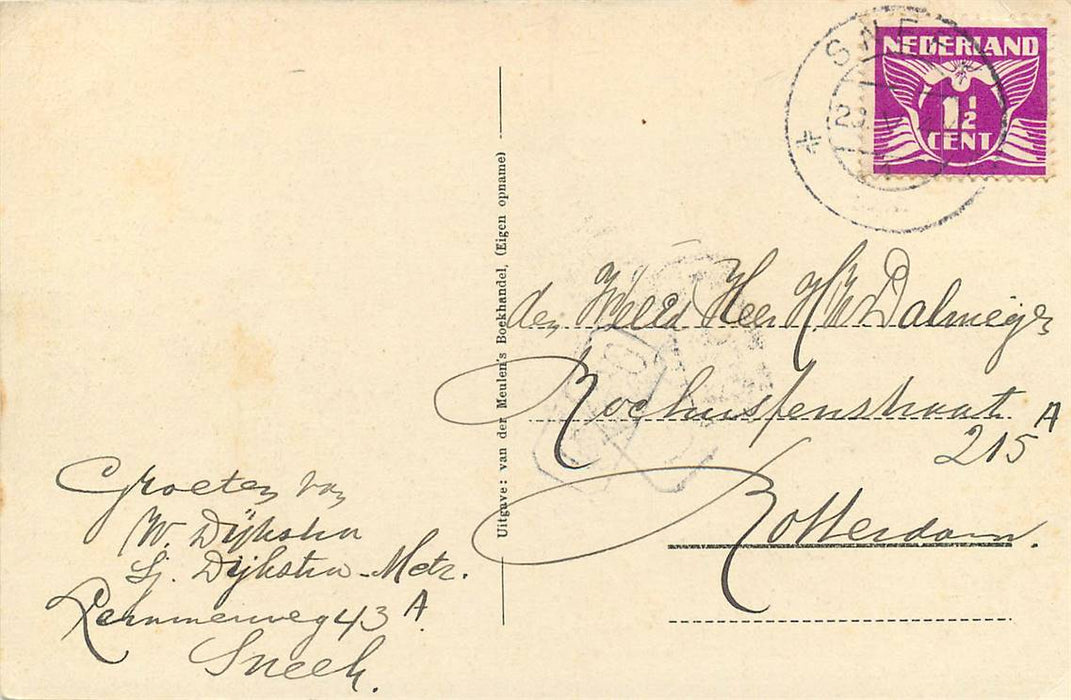 SNEEK
NEDERLAND
1½
CENT
Uitgave: van der Meulen's Boekhandel, (Eigen opname)
den Heer H W Dalmeijer
Rochussenstraat
215 A
Rotterdam.
Groeten van
W. Dijkstra
Sj. Dijkstra-Metz.
Lemmerweg 43 A.
Sneek.